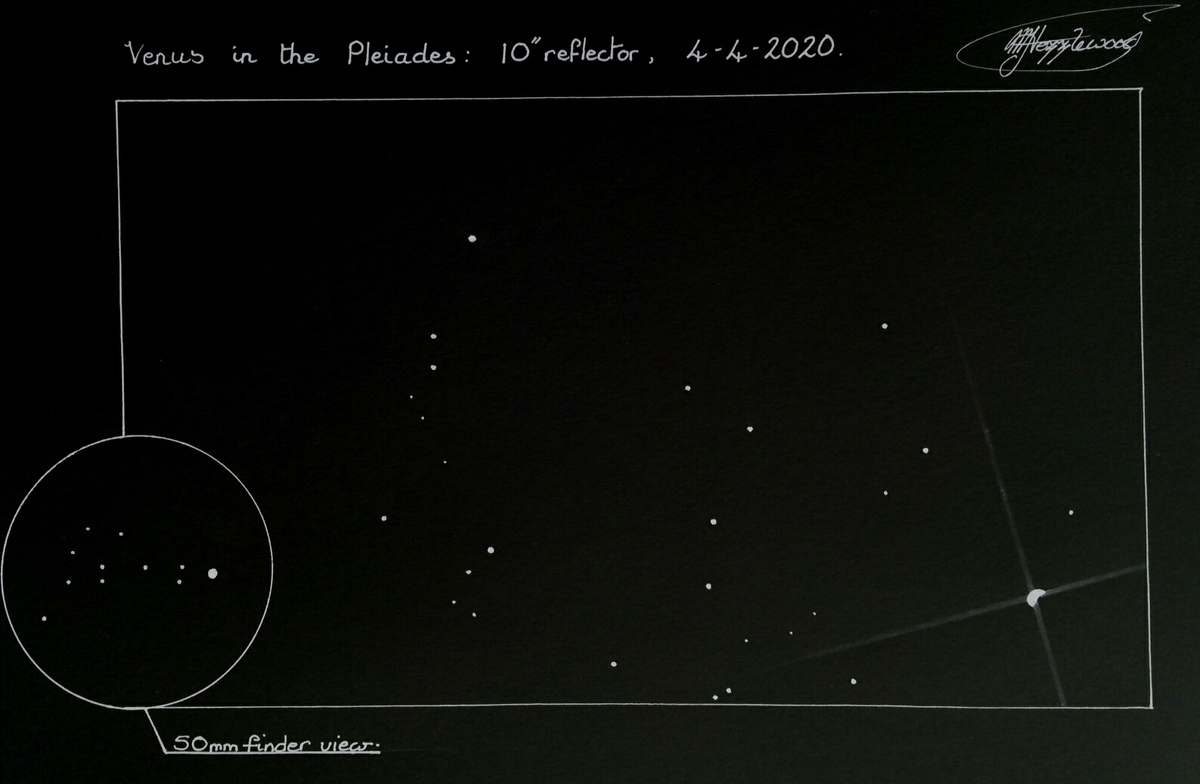 Venus in the Pleiades: 10" reflector, 4-4-2020.
50mm finder view.